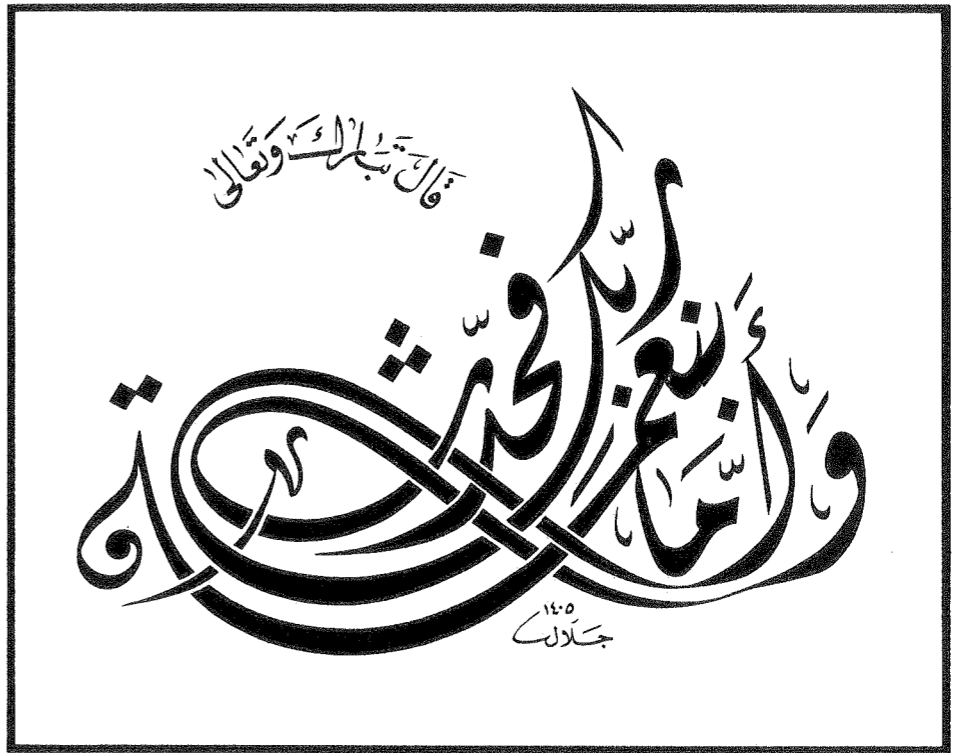 قَالَ تَبَارَكَ وَتَعَالَى
وَأَمَّا بِنِعْمَةِ رَبِّكَ فَحَدِّثْ
١٤٠٥
جَلَال